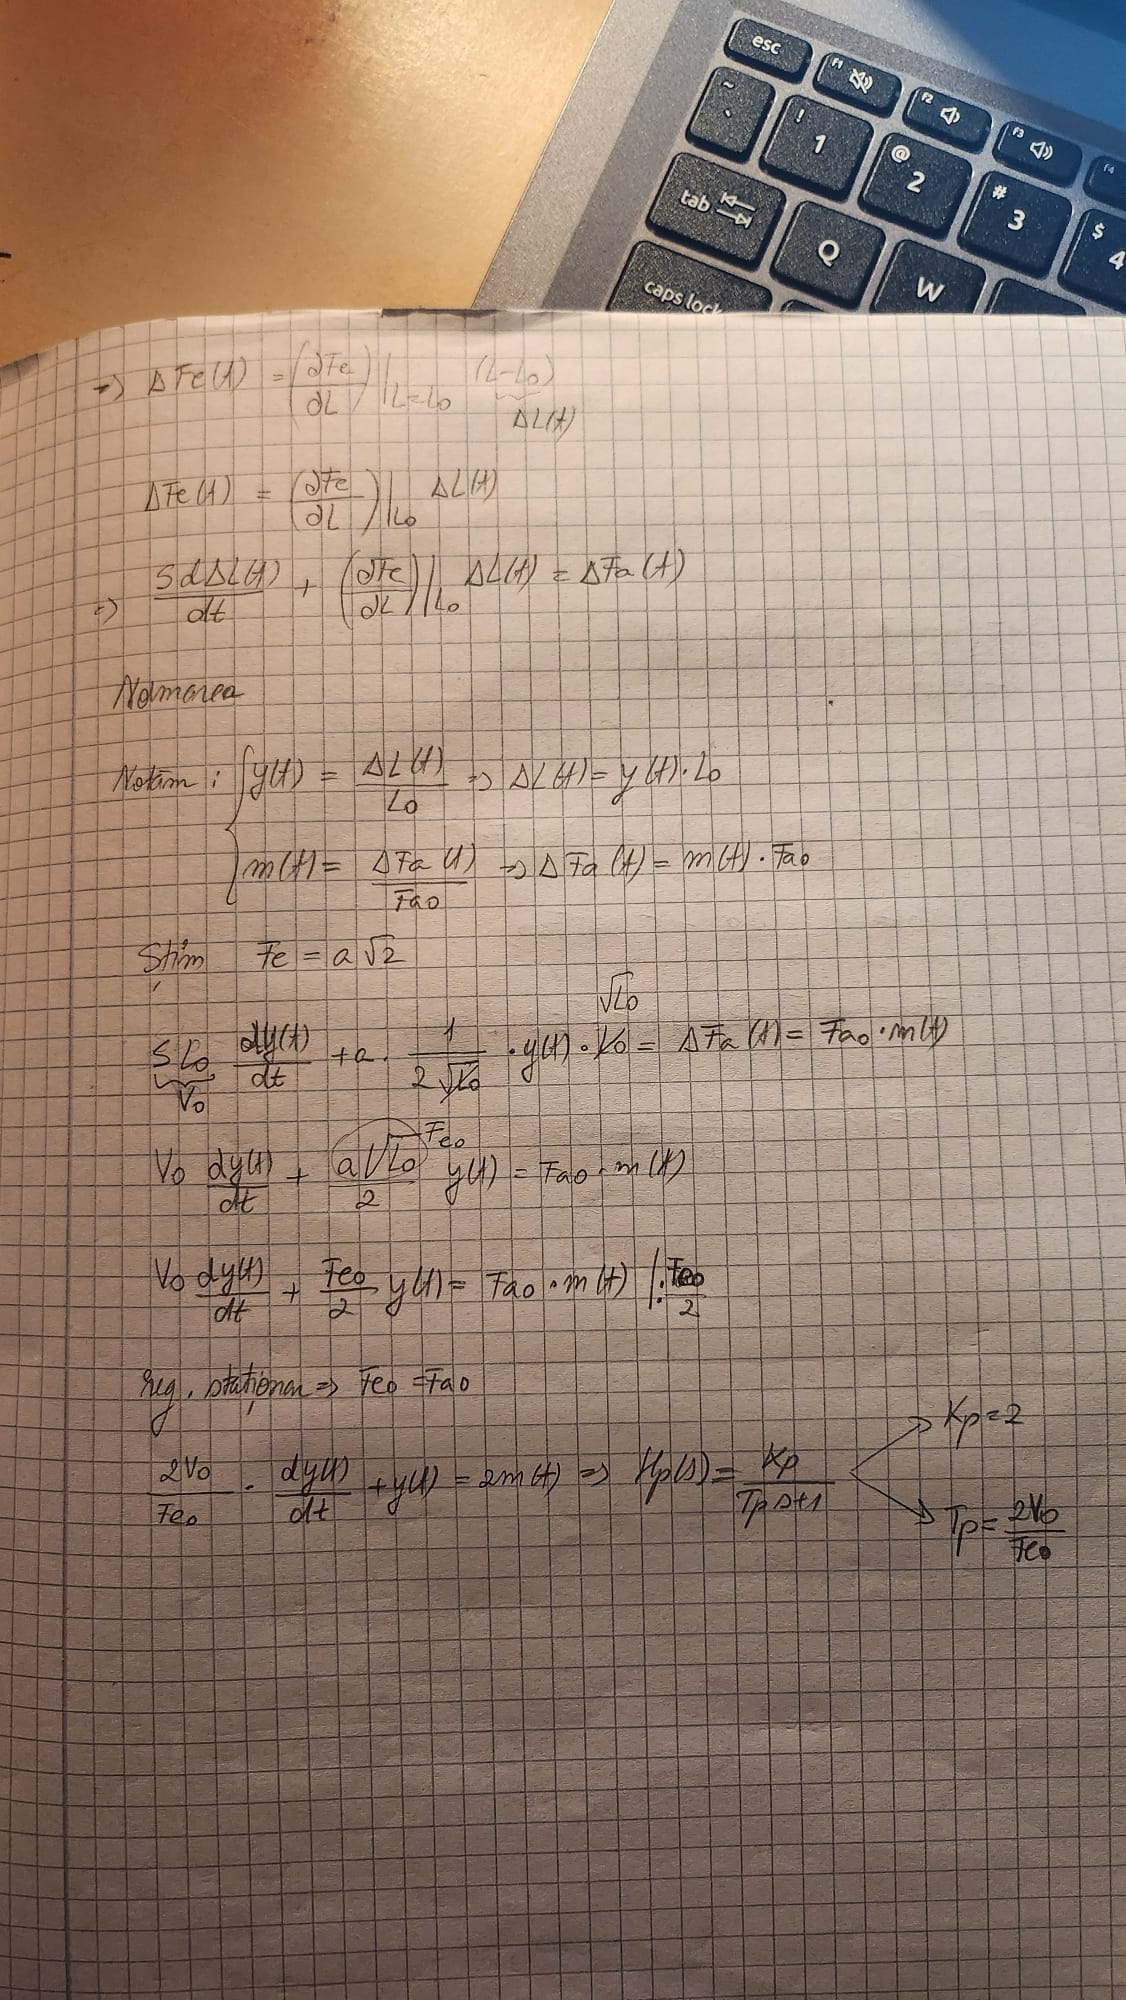 esc F1 F2 F3 F4
~ ` ! 1 @ 2 # 3 $ 4
tab Q W
caps lock
=> ΔFe(t) = (∂Fe/∂L)|L=L0 (L-L0)
ΔL(t)
ΔFe(t) = (∂Fe/∂L)|L0 ΔL(t)
=> SdΔL(t)/dt + (∂Fe/∂L)|L0 ΔL(t) = ΔFa(t)
Normarea
Notăm: { y(t) = ΔL(t)/L0 => ΔL(t) = y(t)·L0
m(t) = ΔFa(t)/Fa0 => ΔFa(t) = m(t)·Fa0
Știm Fe = a√2
√L0
SL0 dy(t)/dt + a · 1/2√L0 · y(t) · L0 = ΔFa(t) = Fa0·m(t)
V0
Fe0
V0 dy(t)/dt + a√L0/2 y(t) = Fa0·m(t)
V0 dy(t)/dt + Fe0/2 y(t) = Fa0·m(t) |: Fe0/2
reg. staționar => Fe0 = Fa0
Kp=2
2V0/Fe0 · dy(t)/dt + y(t) = 2m(t) => Hp(s) = Kp/Tps+1
Tp = 2V0/Fe0